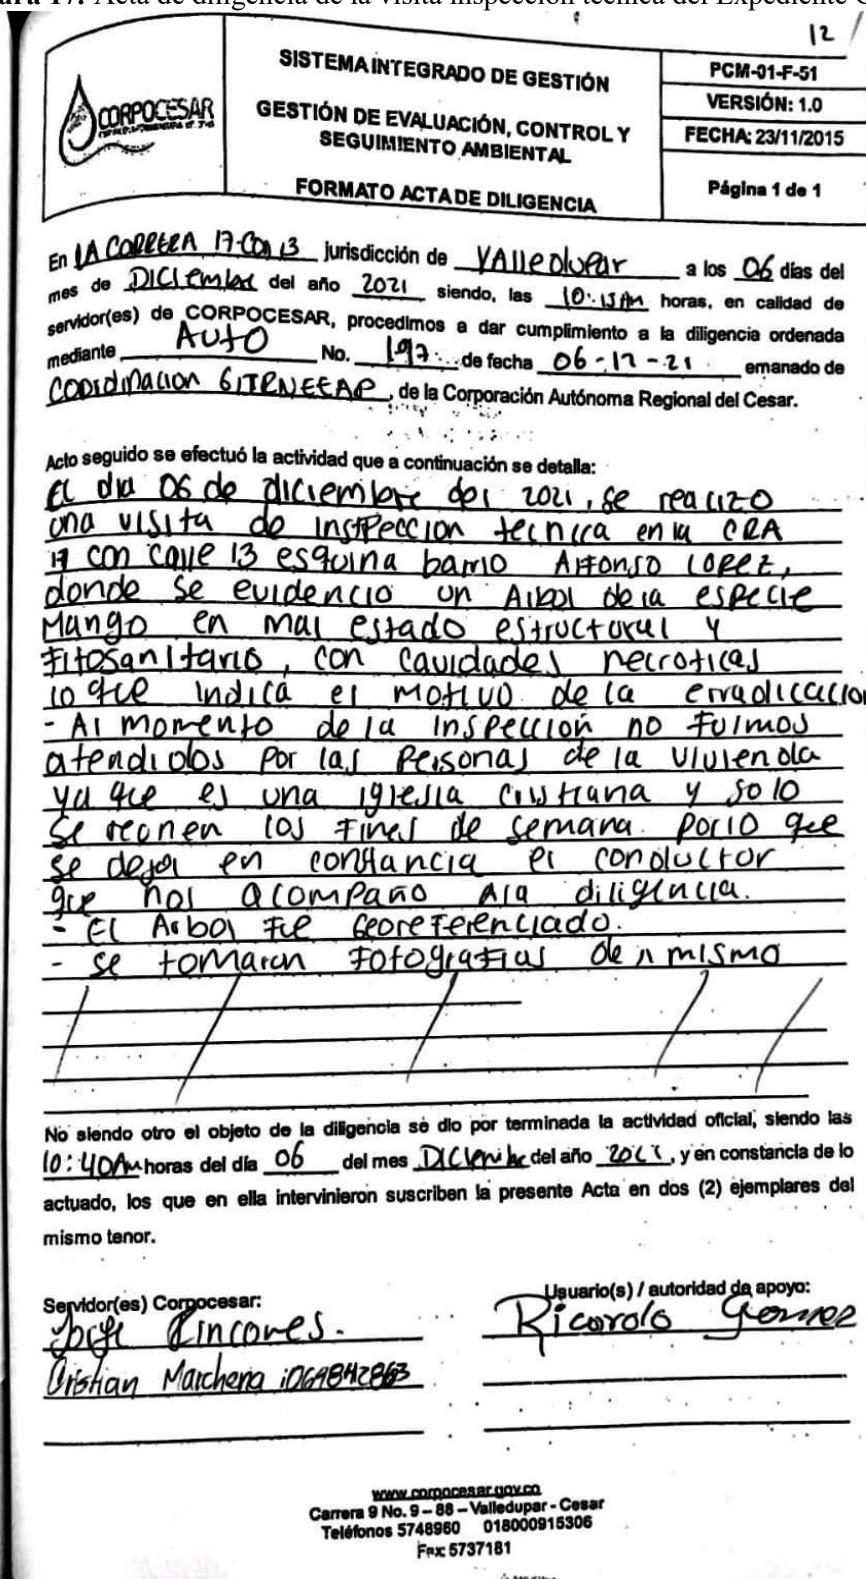 ura 17. Acta de diligencia de la visita inspección técnica del Expediente
12
CORPOCESAR
SISTEMA INTEGRADO DE GESTIÓN
GESTIÓN DE EVALUACIÓN, CONTROL Y
SEGUIMIENTO AMBIENTAL
FORMATO ACTA DE DILIGENCIA
PCM-01-F-51
VERSIÓN: 1.0
FECHA: 23/11/2015
Página 1 de 1
En LA CARRERA 17 con 13 jurisdicción de VAlledupar a los 06 días del
mes de DICIembre del año 2021 siendo, las 10:15 Am horas, en calidad de
servidor(es) de CORPOCESAR, procedimos a dar cumplimiento a la diligencia ordenada
mediante AUTO No. 197 de fecha 06-12-21 emanado de
COORDINACION, de la Corporación Autónoma Regional del Cesar.
Acto seguido se efectuó la actividad que a continuación se detalla:
El dia 06 de diciembre del 2021, se realizo
una visita de inspeccion tecnica en la CRA
17 con calle 13 esquina barrio Alfonso lopez,
donde se evidencio un Arbol de la especie
Mango en mal estado estructural y
Fitosanitario, con cavidades necroticas
lo que indica el motivo de la erradicacion
- Al momento de la inspección no Fuimos
atendidos por las personas de la vivienda
ya que es una iglesia cristiana y solo
se reunen los Fines de semana. por lo que
se deja en constancia el conductor
que nos acompaño Ala diligencia.
- El Arbol Fue Georeferenciado.
- se tomaron Fotografias del mismo
No siendo otro el objeto de la diligencia se dio por terminada la actividad oficial, siendo las
10:40Am horas del día 06 del mes DICIembre del año 2021, y en constancia de lo
actuado, los que en ella intervinieron suscriben la presente Acta en dos (2) ejemplares del
mismo tenor.
Servidor(es) Corpocesar:
Jorge Rincones.
Cristian Marchena 1064842863
Usuario(s) / autoridad de apoyo:
Ricardo Gomez
www.corpocesar.gov.co
Carrera 9 No. 9 – 88 – Valledupar - Cesar
Teléfonos 5748960 018000915306
Fax: 5737181